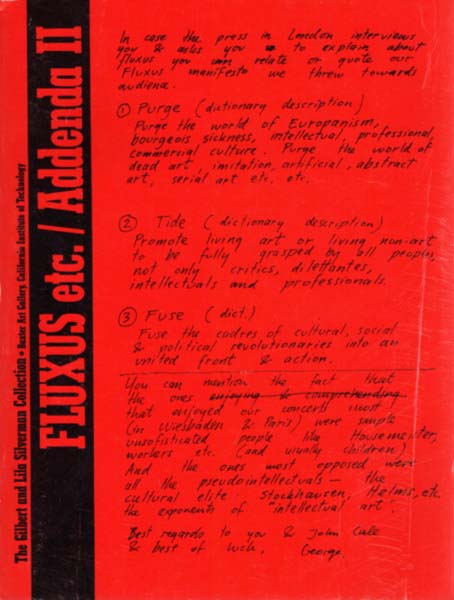 The Gilbert and Lila Silverman Collection • Baxter Art Gallery, California Institute of Technology
FLUXUS etc. / Addenda II
In case the press in London interviews
you & asks you to explain about
fluxus you can relate or quote our
Fluxus manifesto we threw towards
audience.
① Purge (dictionary description)
Purge the world of Europanism,
bourgeois sickness, intellectual, professional,
commercial culture. Purge the world of
dead art, imitation, artificial, abstract
art, serial art etc. etc.
② Tide (dictionary description)
Promote living art or living non-art
to be fully grasped by all people
not only critics, dilettantes,
intellectuals and professionals.
③ Fuse (dict.)
Fuse the cadres of cultural, social
& political revolutionaries into an
united front & action.
You can mention the fact that
the ones enjoying & comprehending
that enjoyed our concerts most
(in Wiesbaden & Paris) were
unsofisticated people like Housemeister,
workers etc. (and usually children)
And the ones most opposed were
all the pseudointellectuals – the
cultural elite Stockhausen, Helms, etc.
the exponents of "intellectual art".
Best regards to you & John Cale
& best of luck,
George.